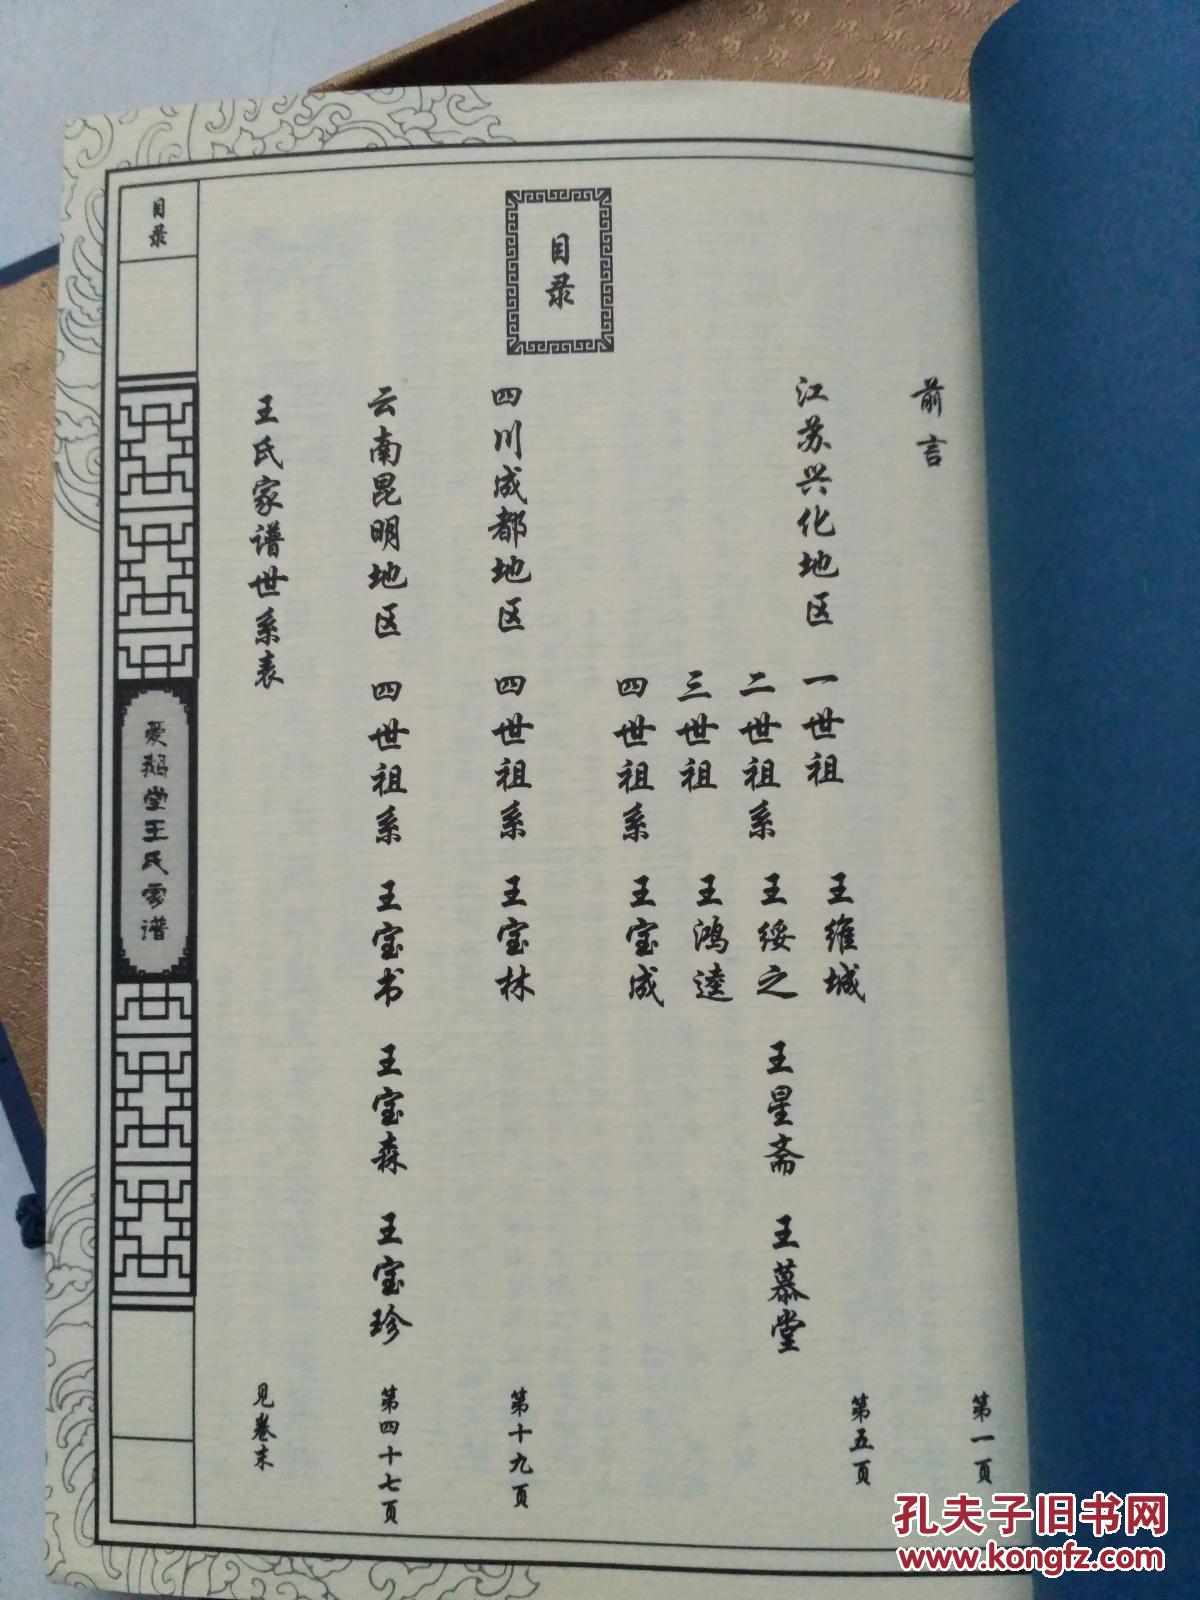 目录
前言 第一页
江苏兴化地区 一世祖 王维城 第五页
二世祖系 王绥之 王星斋 王慕堂
三世祖 王鸿逵
四世祖系 王宝成
四川成都地区 四世祖系 王宝林 第十九页
云南昆明地区 四世祖系 王宝书 王宝森 王宝珍 第四十七页
王氏家谱世系表 见卷末
目录
爱鹅堂王氏家谱
孔夫子旧书网
www.kongfz.com